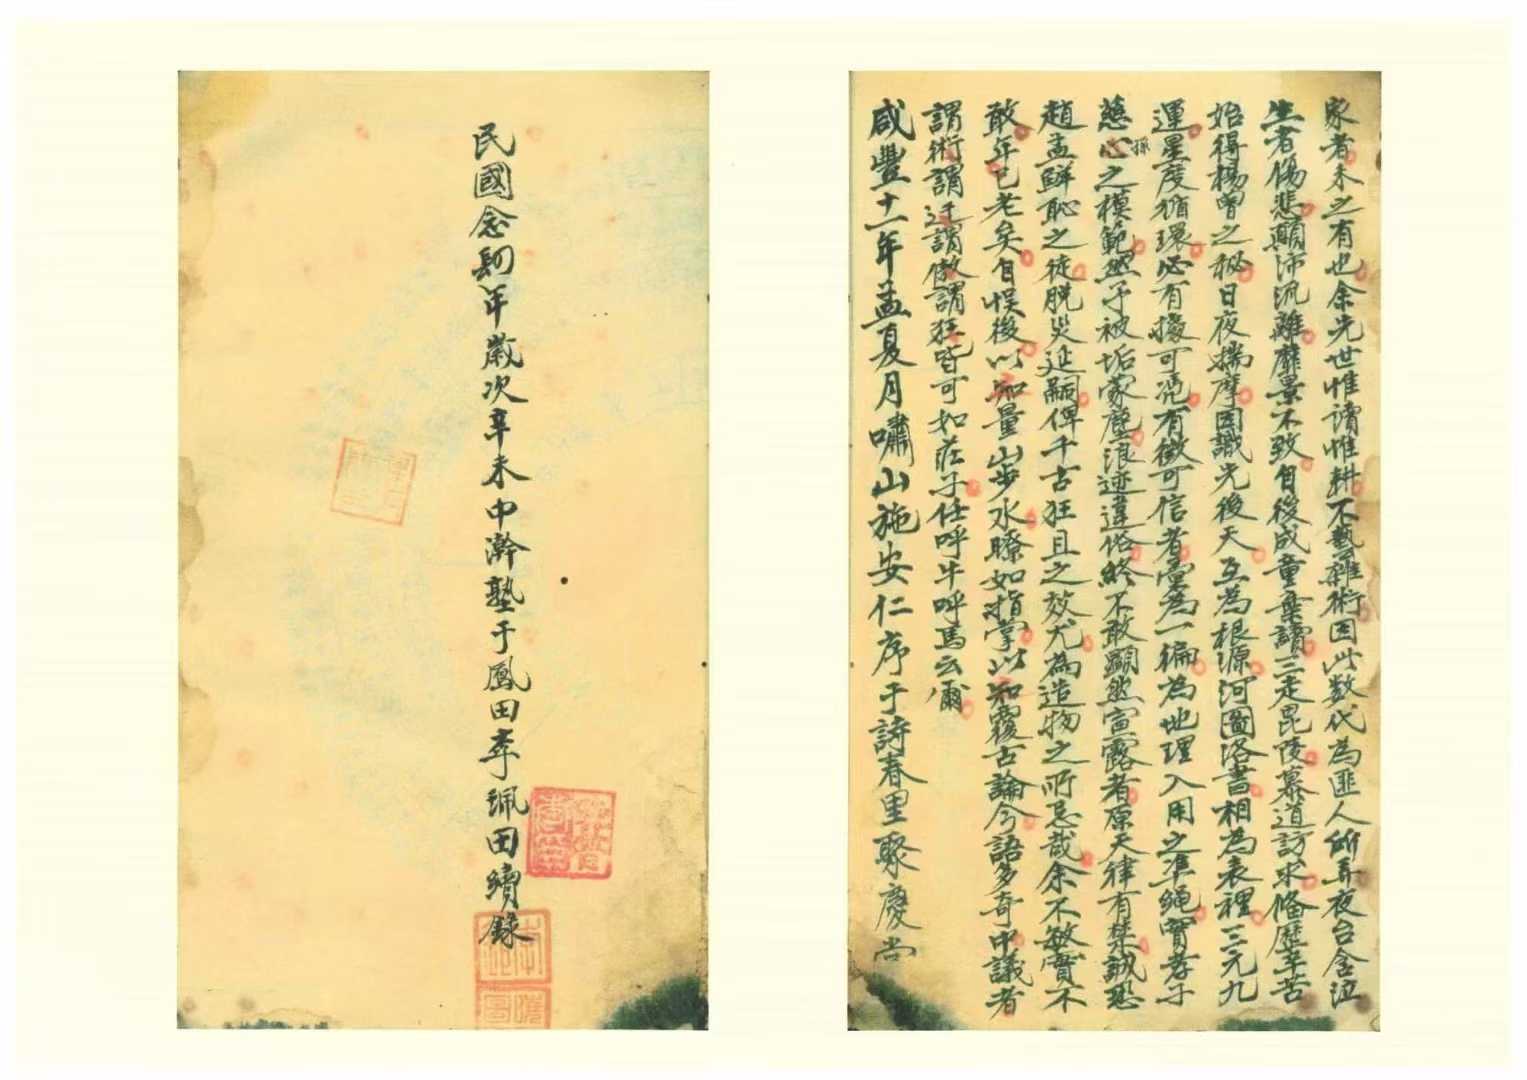 家者未之有也余先世惟讀惟耕不藝雜術因此数代為匪人所弄夜台含泣
生者傷悲顛沛流離靡景不致自後成童棄讀三走毘陵慕道訪求俻歷辛苦
始得楊曾之秘日夜揣摩因識先後天互為根源河圖洛書相為表裡三元九
運星度循環必有據可憑有徵可信者彙為一编為地理入用之凖绳實孝子
慈心之模範然予被垢蒙塵浪迹違俗終不敢顕然宣露者原天律有禁誠恐
探
趙孟鮮恥之徒脱災延嗣俾千古狂且之效尤為造物之所忌哉余不敏實不
敢年已老矣自悮後以知量山步水瞭如指掌以知覆古論今語多奇中議者
謂術謂迂謂傲謂狂皆可如莊子任呼牛呼馬云爾
咸豐十一年孟夏月嘯山施安仁序于詩春里聚慶堂
民國念肆年歲次辛未中澣塾于鳳田李珮田續錄